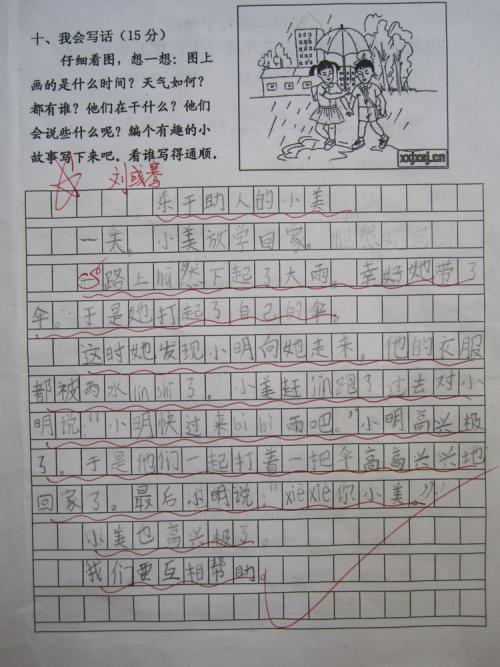 十、我会写话（15分）
仔细看图，想一想：图上
画的是什么时间？天气如何？
都有谁？他们在干什么？他们
会说些什么呢？编个有趣的小
故事写下来吧。看谁写得通顺。
xxjxsj.cn
乐于助人的小美
一天，小美放学回家，
路上hū然下起了大雨。幸好她带了
伞。于是她打起了自己的伞。
这时她发现小明向她走来。他的衣服
都被雨水lin shī了。小美赶jǐn跑了过去对小
明说：“小明快过来bì bì雨吧。”小明高兴极
了。于是他们一起打着一把伞高高兴兴地
回家了。最后小明说：“xiè xiè你小美。”
小美也高兴极了。
我们要互相帮助。